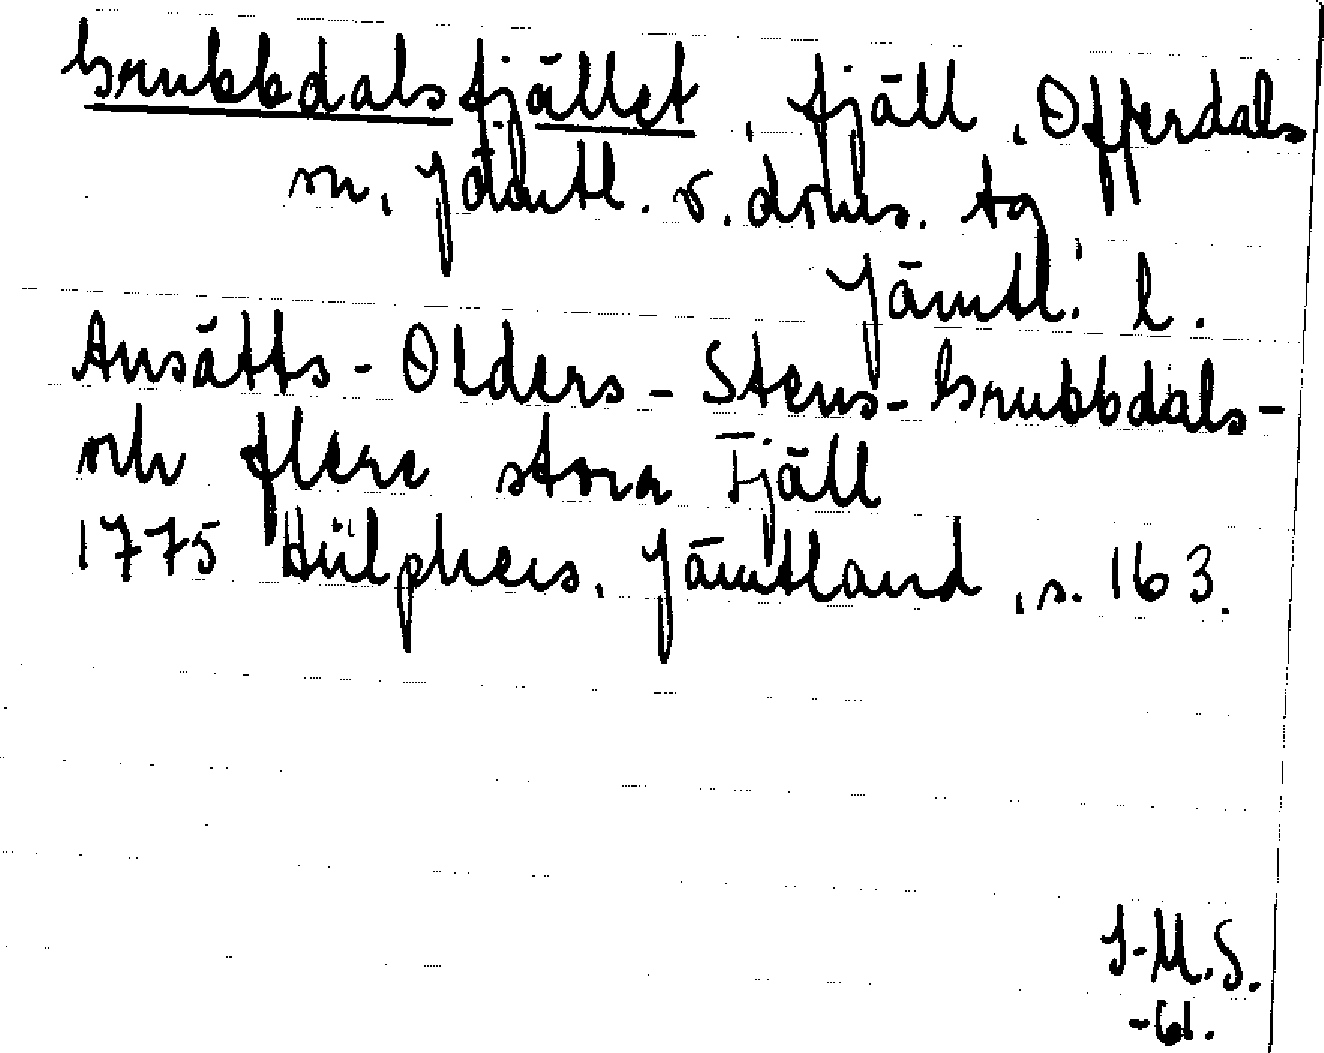 Grubbdalsfjället, fjäll, Offerdals
sn, Jämtl. v. dms. tg
Jämtl. l.
Ansätts - Olders - Stens - Grubbdals -
och flere stora Fjäll
1775 Hülphers, Jämtland, s. 163.
I-M.S.
-61.